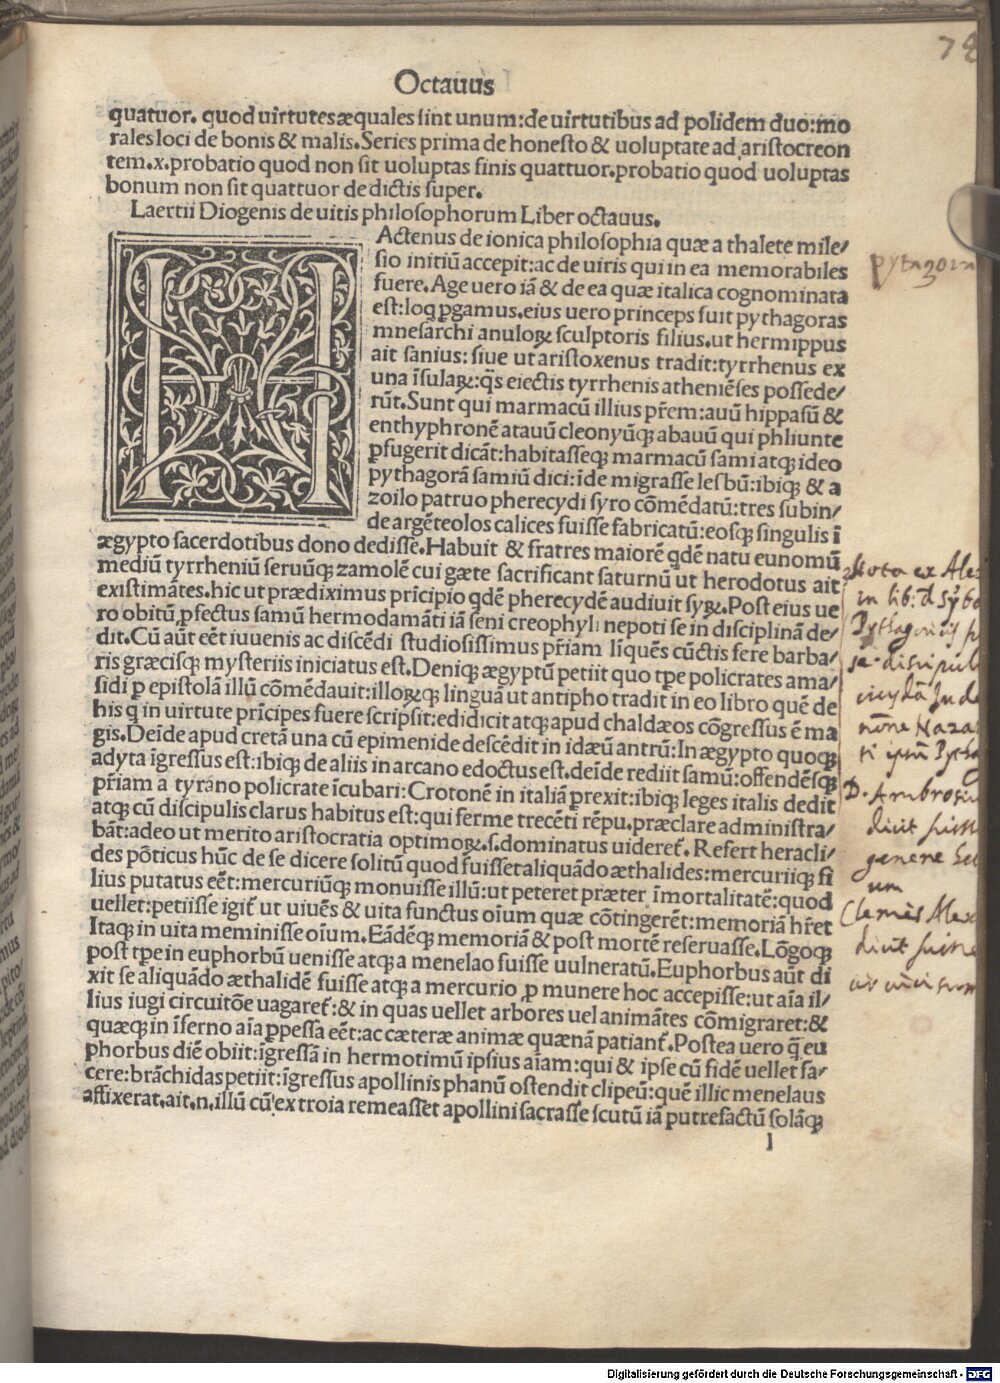 78
Octauus
quatuor. quod uirtutes æquales sint unum:de uirtutibus ad polidem duo:mo
rales loci de bonis & malis.Series prima de honesto & uoluptate ad aristocreon
tem.x.probatio quod non sit uoluptas finis quattuor.probatio quod uoluptas
bonum non sit quattuor de dictis super.
Laertii Diogenis de uitis philosophorum Liber octauus.
HActenus de ionica philosophia quæ a thalete mile/
sio initiū accepit:ac de uiris qui in ea memorabiles
fuere.Age uero iā & de ea quæ italica cognominata
est:loq̄ ꝑgamus.eius uero princeps fuit pythagoras
mnesarchi anuloꝝ sculptoris filius.ut hermippus
ait sanius: siue ut aristoxenus tradit:tyrrhenus ex
una īsulaꝝ:q̄s eiectis tyrrhenis atheniēses possede/
rūt.Sunt qui marmacū illius pr̄em:auū hippasū &
enthyphronē atauū cleonyūqꝫ abauū qui phliunte
ꝓfugerit dicāt:habitasseqꝫ marmacū sami atqꝫ ideo
pythagorā samiū dici:īde migrasse lesbū:ibiqꝫ & a
zoilo patruo pherecydi syro cōmēdatū:tres subin/
de argēteolos calices fuisse fabricatū:eosqꝫ singulis ī
ægypto sacerdotibus dono dedisse.Habuit & fratres maiorē qdē natu eunomū
mediū tyrrheniū seruūqꝫ zamolē cui gæte sacrificant saturnū ut herodotus ait
existimātes.hic ut prædiximus prīcipio qdē pherecydē audiuit syꝝ.Post eius ue
ro obitū ꝓfectus samū hermodamāti iā seni creophyli nepoti se in disciplinā de/
dit.Cū aūt eēt iuuenis ac discēdi studiosissimus pr̄iam līquēs cūctis fere barba/
ris græcisqꝫ mysteriis iniciatus est.Deniqꝫ ægyptū petiit quo tꝑe policrates ama/
sidi ꝑ epistolā illū cōmēdauit:illoꝝqꝫ linguā ut antipho tradit in eo libro quē de
his q in uirtute prīcipes fuere scripsit:edidicit atqꝫ apud chaldæos cōgressus ē ma
gis.Deīde apud cretā una cū epimenide descēdit in idæū antrū:In ægypto quoqꝫ
adyta igressus est:ibiqꝫ de aliis in arcano edoctus est.deīde rediit samū:offendēsqꝫ
pr̄iam a tyrāno policrate īcubari:Crotonē in italiā ꝑrexit:ibiqꝫ leges italis dedit
atqꝫ cū discipulis clarus habitus est:qui ferme trecēti rēpu.præclare administra/
bāt:adeo ut merito aristocratia optimoꝝ.s.dominatus uideret̄. Refert heracli/
des pōticus hūc de se dicere solitū quod fuisset aliquādo æthalides:mercuriiqꝫ fi
lius putatus eēt:mercuriūqꝫ monuisse illū:ut peteret præter īmortalitatē:quod
uellet:petiisse igit̄ ut uiuēs & uita functus oīum quæ cōtingerēt:memoriā hr̄et
Itaqꝫ in uita meminisse oīum.Eādēqꝫ memoriā & post mortē reseruasse.Lōgoqꝫ
post tꝑe in euphorbū uenisse atqꝫ a menelao fuisse uulneratū.Euphorbus aūt di
xit se aliquādo æthalidē fuisse atqꝫ a mercurio ꝓ munere hoc accepisse:ut aīa il/
lius iugi circuitōe uagaret̄:& in quas uellet arbores uel animātes cōmigraret:&
quæqꝫ in īferno aīa ꝑpessa eēt:ac cæteræ animæ quænā patiant̄.Postea uero q̄ eu
phorbus diē obiit:īgressā in hermotimū ipsius aīam:qui & ipse cū fidē uellet fa/
cere:brāchidas petiit:īgressus apollinis phanū ostendit clipeū:quē illic menelaus
affixerat.ait.n.illū cū ex troia remeasset apollini sacrasse scutū iā putrefactū solāqꝫ
l
Nota ex Ale
in lib: d Syb
Pythagoricis
discipul
D. Ambrosiu
dicit fuiss
genere
um
Clemēs Alex
dicit fuisse
Digitalisierung gefördert durch die Deutsche Forschungsgemeinschaft - DFG